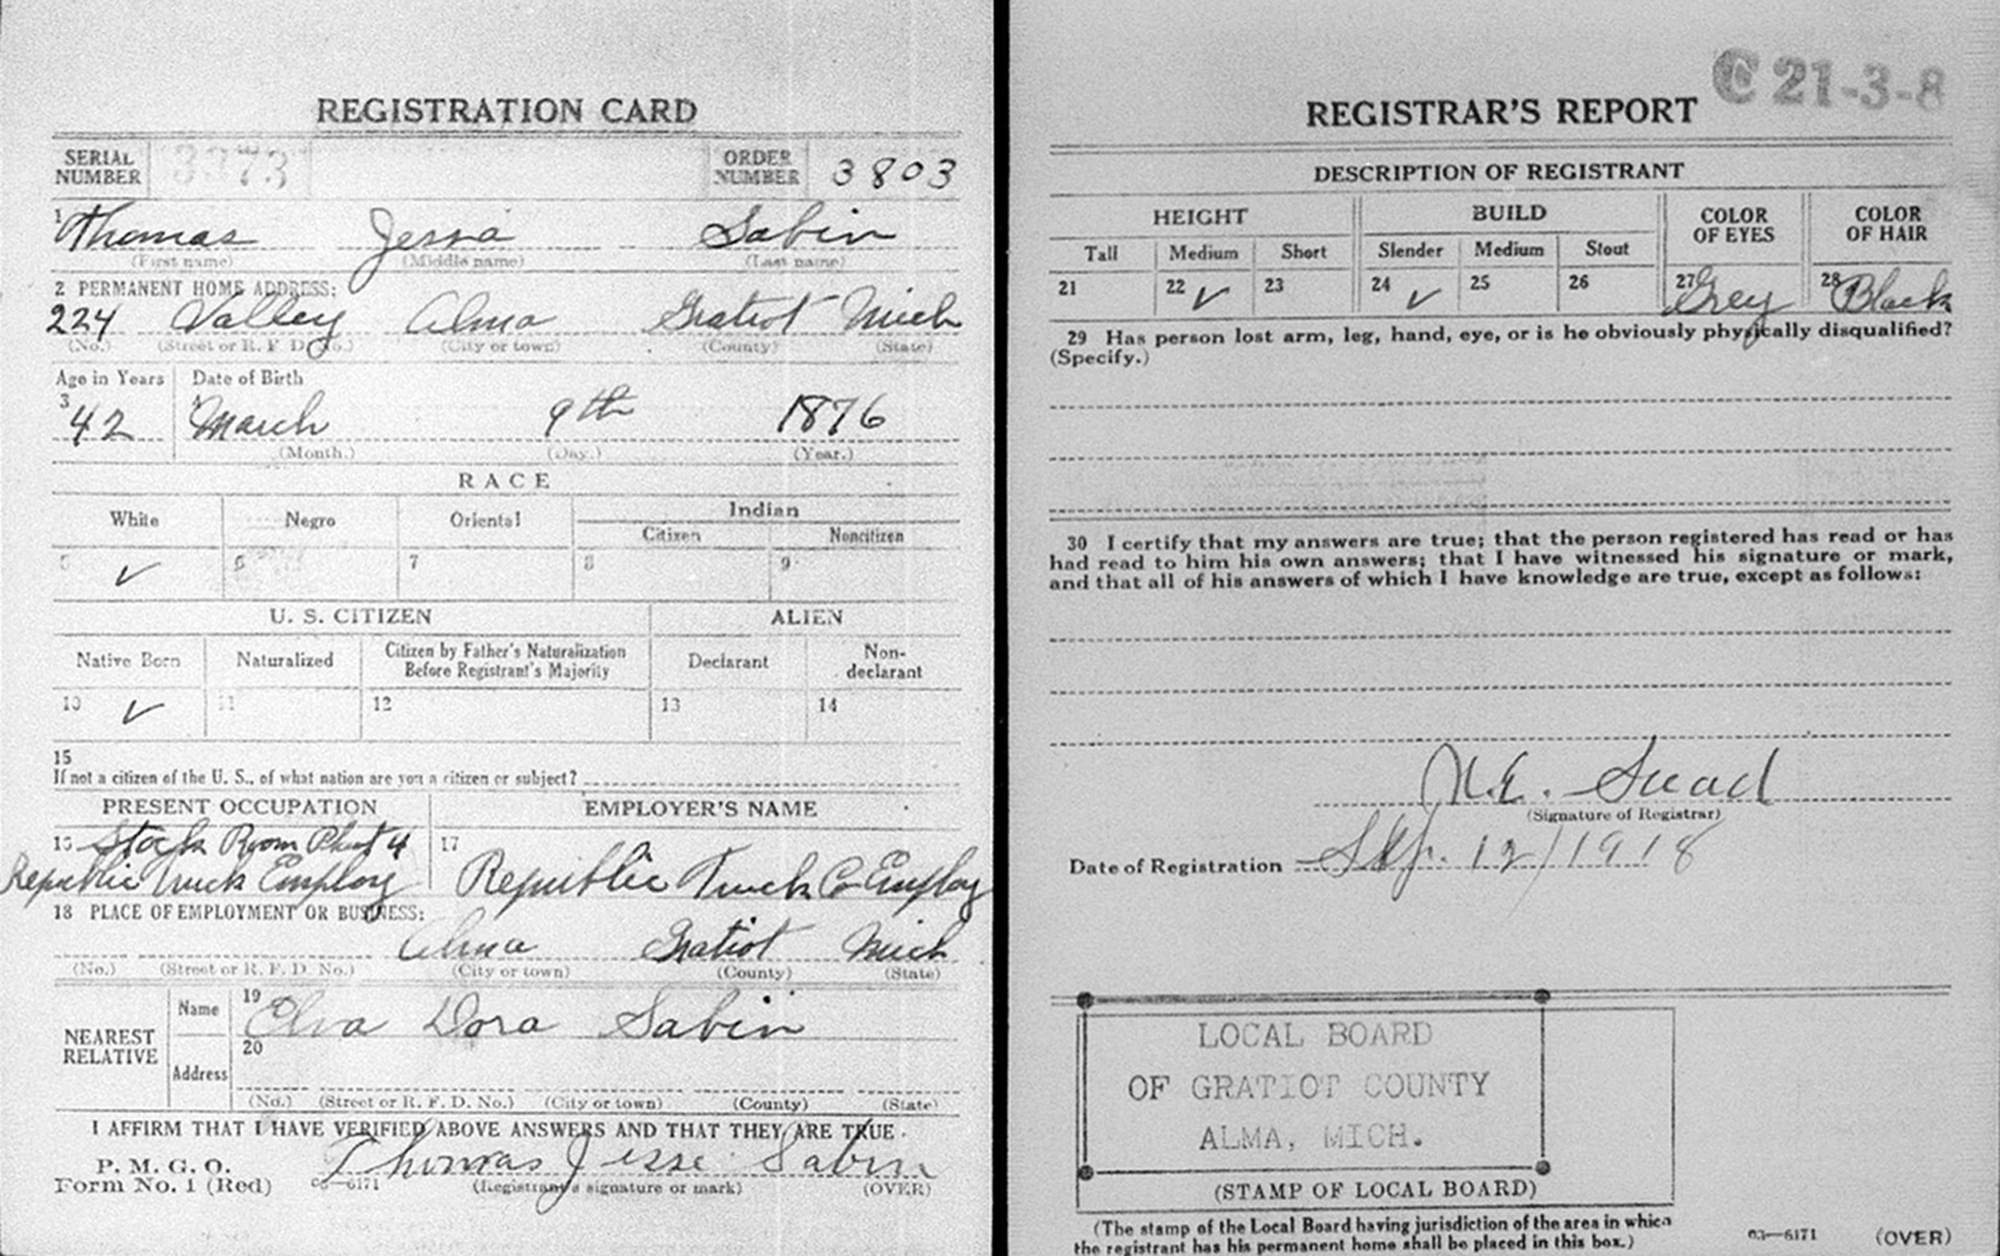 REGISTRATION CARD
SERIAL NUMBER 3373 ORDER NUMBER 3803
1 Thomas Jessa Sabin
(First name) (Middle name) (Last name)
2 PERMANENT HOME ADDRESS:
224 Valley Alma Gratiot Mich
(No.) (Street or R. F. D. No.) (City or town) (County) (State)
Age in Years Date of Birth
3 42 4 March 9th 1876
(Month.) (Day.) (Year.)
RACE
White Negro Oriental Indian
Citizen Noncitizen
5 ✓ 6 7 8 9
U. S. CITIZEN ALIEN
Native Born Naturalized Citizen by Father's Naturalization Before Registrant's Majority Declarant Non-declarant
10 ✓ 11 12 13 14
15
If not a citizen of the U. S., of what nation are you a citizen or subject?
PRESENT OCCUPATION EMPLOYER'S NAME
16 Stock Room Plant 4 17
Republic Truck Employ Republic Truck Co Employ
18 PLACE OF EMPLOYMENT OR BUSINESS:
Alma Gratiot Mich
(No.) (Street or R. F. D. No.) (City or town) (County) (State)
NEAREST RELATIVE
Name 19 Elva Dora Sabin
Address 20
(No.) (Street or R. F. D. No.) (City or town) (County) (State)
I AFFIRM THAT I HAVE VERIFIED ABOVE ANSWERS AND THAT THEY ARE TRUE.
P. M. G. O.
Form No. 1 (Red) 03—6171 Thomas Jesse Sabin
(Registrant's signature or mark) (OVER)
C 21-3-8
REGISTRAR'S REPORT
DESCRIPTION OF REGISTRANT
HEIGHT BUILD COLOR OF EYES COLOR OF HAIR
Tall Medium Short Slender Medium Stout
21 22 ✓ 23 24 ✓ 25 26 27 Grey 28 Black
29 Has person lost arm, leg, hand, eye, or is he obviously physically disqualified?
(Specify.)
30 I certify that my answers are true; that the person registered has read or has
had read to him his own answers; that I have witnessed his signature or mark,
and that all of his answers of which I have knowledge are true, except as follows:
(Signature of Registrar)
Date of Registration Sep. 12/1918
LOCAL BOARD
OF GRATIOT COUNTY
ALMA, MICH.
(STAMP OF LOCAL BOARD)
(The stamp of the Local Board having jurisdiction of the area in which
the registrant has his permanent home shall be placed in this box.)
03—6171 (OVER)